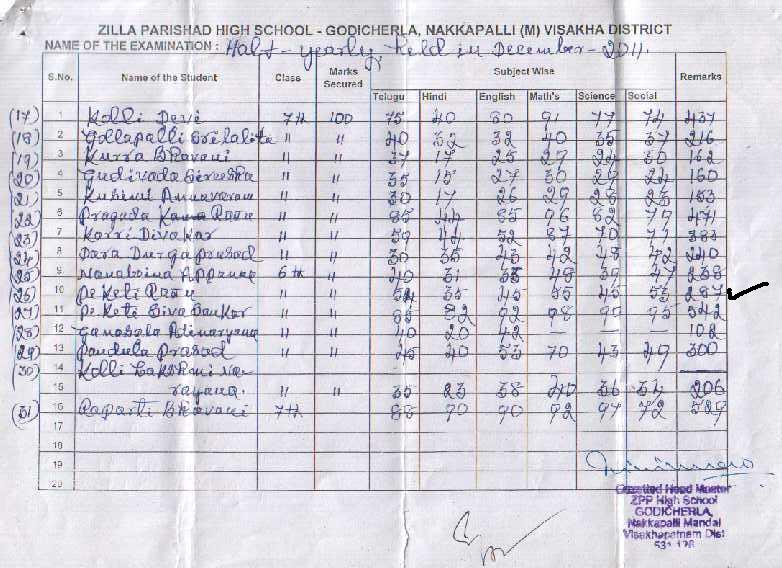 ZILLA PARISHAD HIGH SCHOOL - GODICHERLA, NAKKAPALLI (M) VISAKHA DISTRICT
NAME OF THE EXAMINATION : Half-yearly held in December-2011.
S.No. Name of the Student Class Marks Secured Subject Wise Remarks
Telugu Hindi English Math's Science Social
(17) 1 Kolli Devi 7th 100 75 40 80 91 77 74 437
(18) 2 Gollapalli Srilalita " " 40 32 32 40 35 37 216
(19) 3 Kurra Bhavani " " 37 17 25 29 24 30 162
(20) 4 Gudivada " " 35 15 27 30 29 24 160
(21) 5 " " 30 17 26 29 28 23 153
(22) 6 Pragada Rao " " 85 44 85 96 82 79 471
(23) 7 Karri Divakar " " 59 44 52 87 70 71 383
(24) 8 Dara Durga prasad " " 30 35 43 42 48 42 240
(25) 9 6th " " 40 31 33 48 39 47 238
10 " " 54 35 45 55 45 53 287
(27) 11 Siva Sankar " " 85 82 92 98 90 95 542
12 " " 40 20 42 — — — 102
(29) 13 Pandula Prasad " " 45 40 53 70 43 49 300
(30) 14 Kolli Lakshmi Na-
15 rayana. " " 35 23 38 40 36 34 206
(31) 16 Raparti Bhavani 7th 88 90 90 92 97 72 529
17
18
19
20
Gazetted Head Master
ZPP High School
GODICHERLA,
Nakkapalli Mandal
Visakhapatnam Dist
531 126